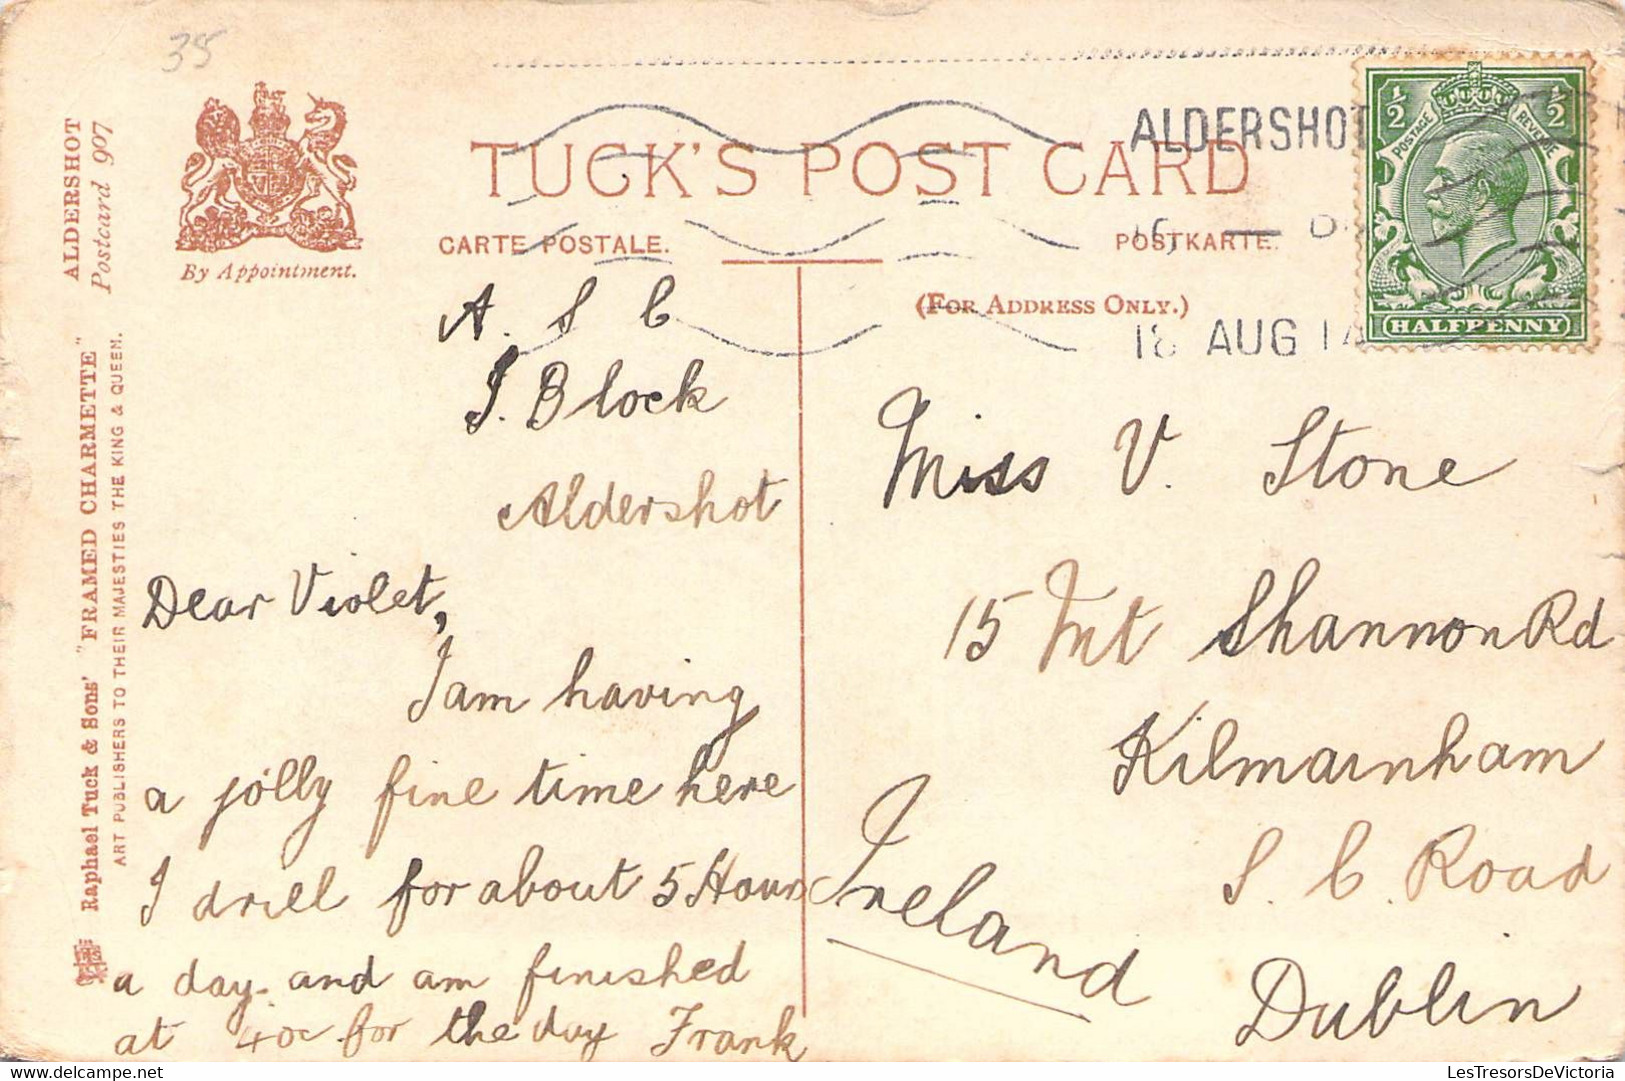 35
ALDERSHOT
Postcard 907
Raphael Tuck & Sons' "FRAMED CHARMETTE"
ART PUBLISHERS TO THEIR MAJESTIES THE KING & QUEEN.
By Appointment.
TUCK'S POST CARD
CARTE POSTALE.
POSTKARTE.
(FOR ADDRESS ONLY.)
ALDERSHOT
18 AUG 14
1/2 1/2
POSTAGE REVENUE
HALFPENNY
A. S C
J. Block
Aldershot
Dear Violet,
I am having
a jolly fine time here
I drill for about 5 Hours
a day. and am finished
at 4 oc for the day Frank
Miss V. Stone
15 Mt Shannon Rd
Kilmainham
S. C. Road
Dublin
Ireland
LesTresorsDeVictoria
les-tresors-de-victoria.delcampe.net